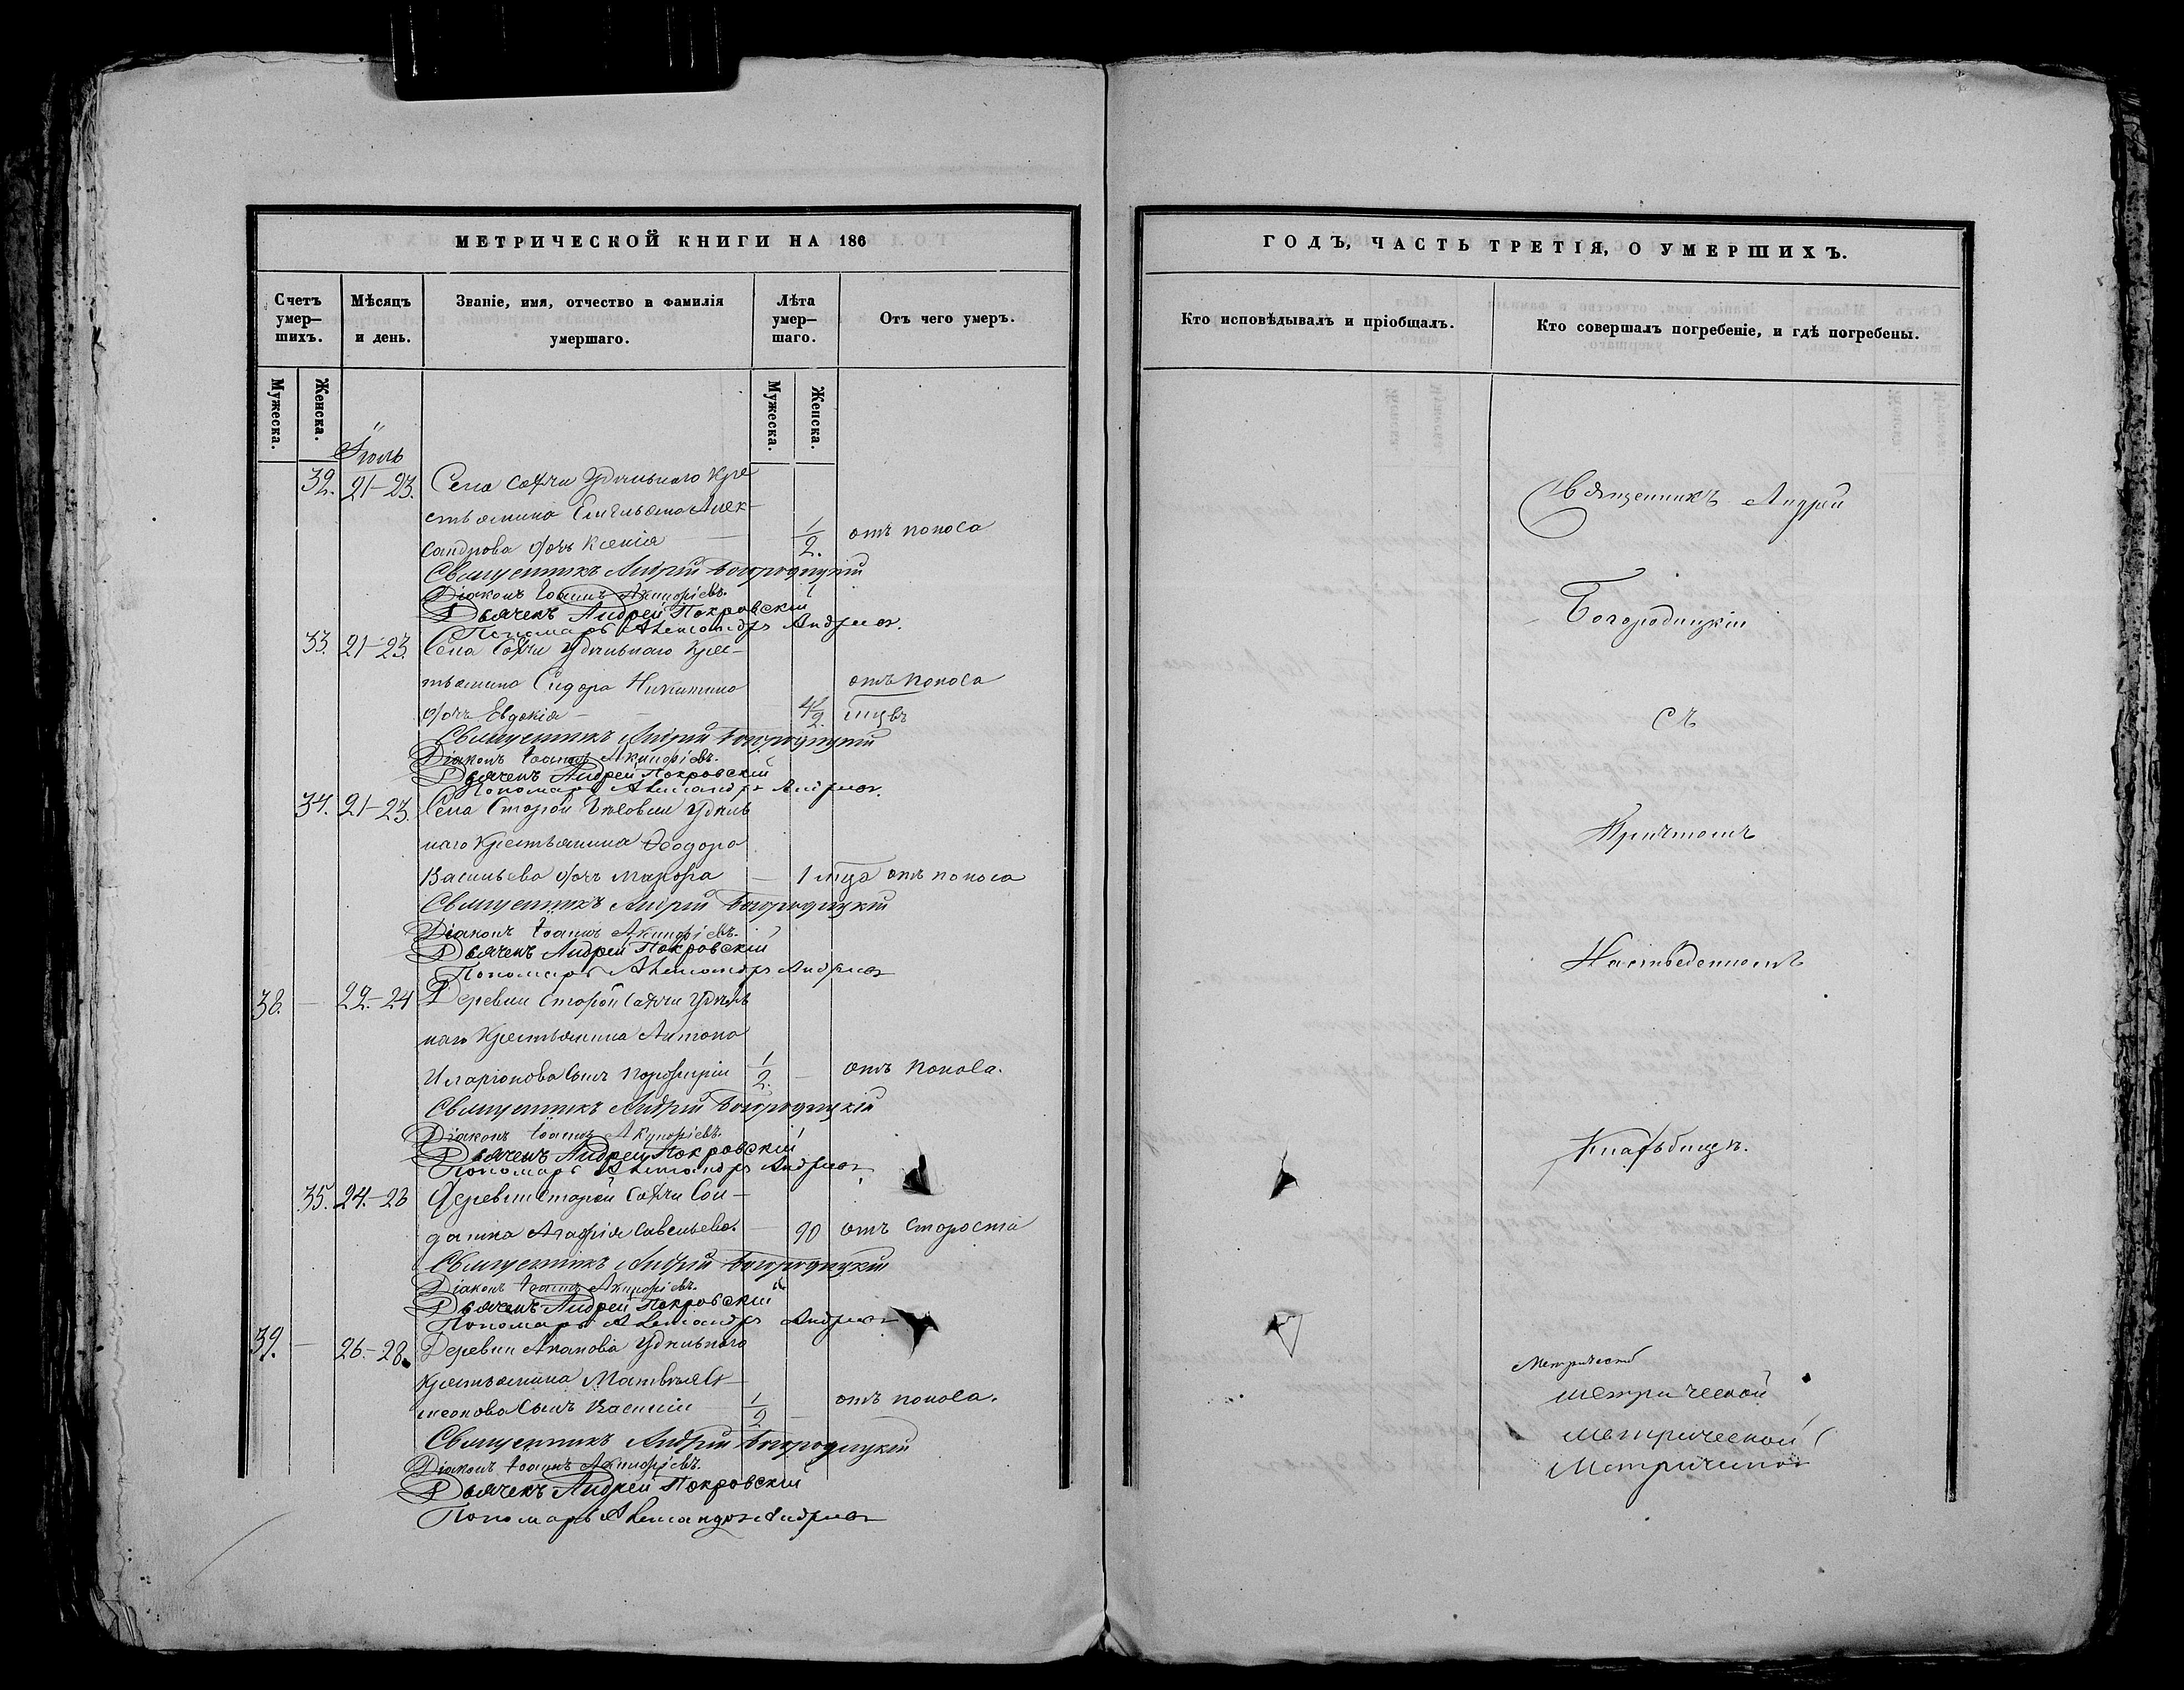 МЕТРИЧЕСКОЙ КНИГИ НА 186
Счетъ умер–шихъ.
Мѣсяцъ и день.
Званіе, имя, отчество и фамилія умершаго.
Лѣта умер–шаго.
Отъ чего умеръ.
Мужеска.
Женска.
Мужеска.
Женска.
Іюль
32. 21–23. Села Сахчи Удѣльнаго Кре
стьянина Емельяна Алек–
сандрова дочь Ксенія — 1/2. отъ поноса
Священникъ Андрей Богородицкій
Діаконъ Іоаннъ Акинфіевъ.
Дьячекъ Андрей Покровскій
Пономарь Александръ
33. 21–23. Села Сахчи Удѣльнаго Крес–
тьянина Сидора Никитина отъ поноса
дочь Евдокія –
Священникъ Андрей Богородицкій
Діаконъ Іоаннъ Акинфіевъ.
Дьячекъ Андрей Покровскій
Пономарь Александръ
34. 21–23. Села Старой Удѣль
наго Крестьянина Ѳеодора
Васильева дочь Марфа — 1 мца отъ поноса
Священникъ Андрей Богородицкій
Діаконъ Іоаннъ Акинфіевъ.
Дьячекъ Андрей Покровскій
Пономарь Александръ
38. — 22.–24 Деревни Старой Сахчи Удѣль
наго Крестьянина Антона
Иларіонова сынъ Порфирій 1/2. — отъ поноса.
Священникъ Андрей Богородицкій
Діаконъ Іоаннъ Акинфіевъ.
Дьячекъ Андрей Покровскій
Пономарь Александръ
35. 24.–26 Деревни Старой Сахчи Сол–
датка Агафія Савельева. — 90 отъ старости
Священникъ Андрей Богородицкій
Діаконъ Іоаннъ Акинфіевъ.
Дьячекъ Андрей Покровскій
Пономарь Александръ
39. — 26.–28. Деревни Аканова Удѣльнаго
Крестьянина Матвѣя
сынъ Василій 1/2 — отъ поноса.
Священникъ Андрей Богородицкій
Діаконъ Іоаннъ Акинфіевъ.
Дьячекъ Андрей Покровскій
Пономарь Александръ
ГОДЪ, ЧАСТЬ ТРЕТІЯ, О УМЕРШИХЪ.
Кто исповѣдывалъ и пріобщалъ.
Кто совершалъ погребеніе, и гдѣ погребены.
Священникъ Андрей
Богородицкій
съ
Причтомъ
На отведенномъ
Кладбищѣ.
метрической
Метрической